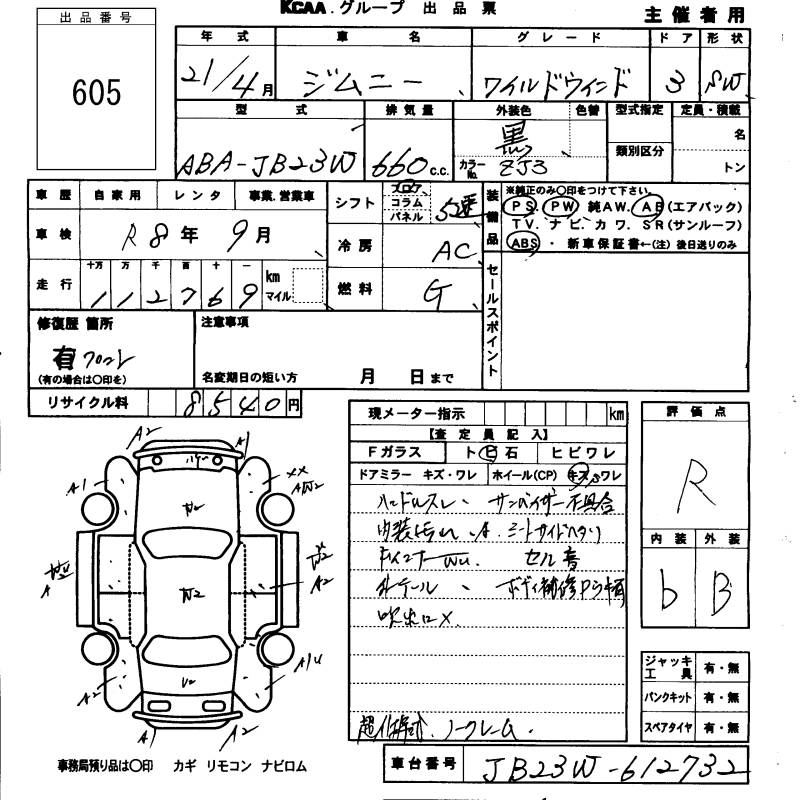 KCAA.グループ 出品票
主催者用
出品番号
605
年式 車名 グレード ドア 形状
21/4月 ジムニー ワイルドウィンド 3 SW
型式 排気量 外装色 色替 型式指定 定員・積載
ABA-JB23W 660c.c. 黒 カラーNo. ZJ3 類別区分 名 トン
車歴 自家用 レンタ 事業.営業車
シフト フロア コラム パネル 5速
車検 R8年9月
冷房 AC
走行 十万 万 千 百 十 一 km マイル
112769
燃料 G
装備品
※純正のみ○印をつけて下さい。
PS PW 純AW. AB(エアバック)
TV. ナビ. カワ. SR(サンルーフ)
ABS ・ 新車保証書←(注) 後日送りのみ
セールスポイント
修復歴 箇所
有 フロント
(有の場合は○印を)
注意事項
名変期日の短い方 月 日まで
リサイクル料 8540円
現メーター指示 km
【査定員記入】
Fガラス ト ビ 石 ヒビワレ
ドアミラー キズ・ワレ ホイール(CP) キズ ワレ
ハンドルスレ、サンバイザー不具合
内装汚れ、A. シートサイドヘタリ
セル音
外テール、ボディ補修
吹出口X.
超低年式. ノークレーム.
評価点
R
内装 外装
b B
ジャッキ工具 有・無
パンクキット 有・無
スペアタイヤ 有・無
A2 A1
A1 XX AW2
W2
A W2 A2
A2 V2 A1U
A1 A2
事務局預り品は○印 カギ リモコン ナビロム
車台番号 JB23W-612732